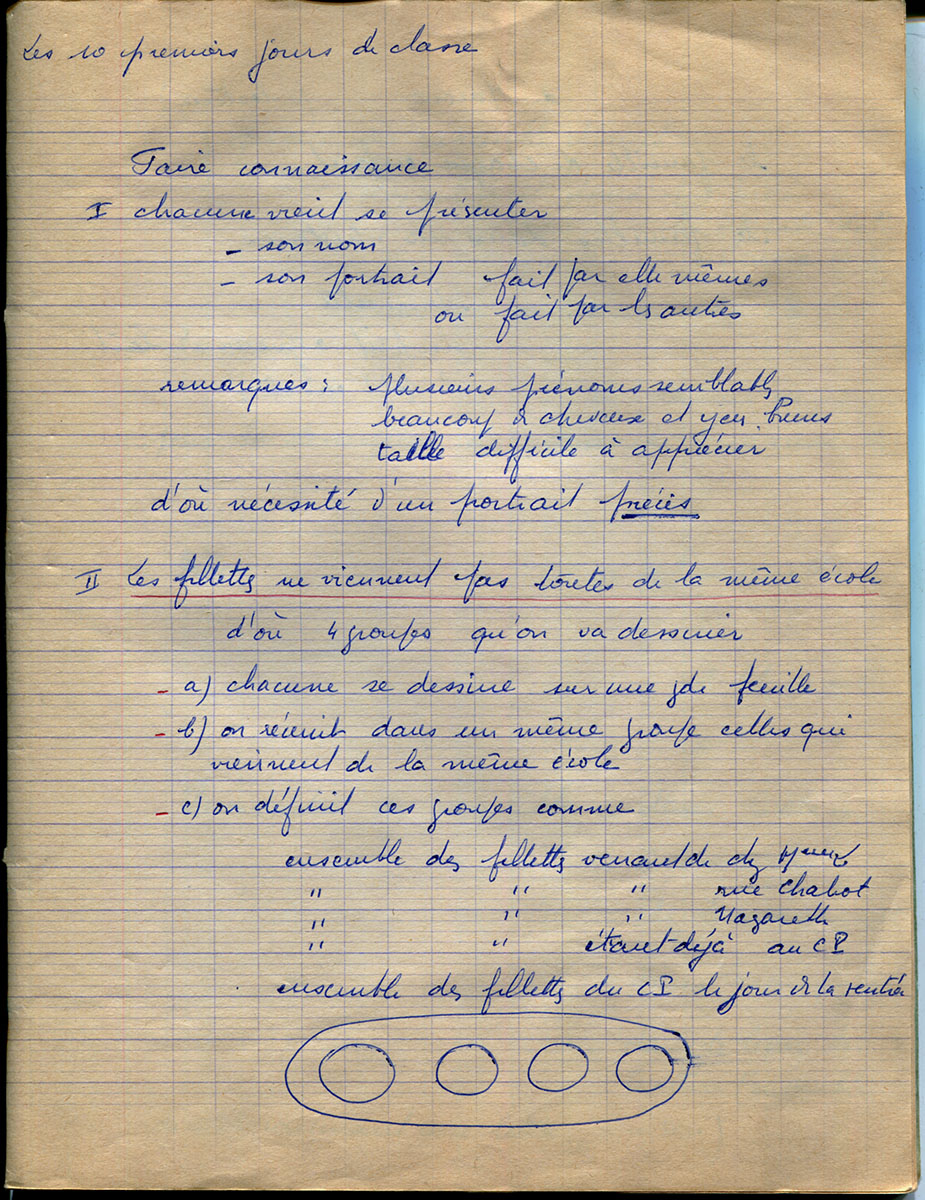 Les 10 premiers jours de classe
Faire connaissance
I chacune vient se présenter
- son nom
- son portrait fait par elle mêmes
ou fait par les autres
remarques : plusieurs prénoms semblables
beaucoup de cheveux et yeux bruns
taille difficile à apprécier
d'où nécessité d'un portrait précis
II Les fillettes ne viennent pas toutes de la même école
d'où 4 groupes qu'on va dessiner
- a) chacune se dessine sur une gde feuille
- b) on réunit dans un même groupe celles qui
viennent de la même école
- c) on définit ces groupes comme
ensemble des fillettes venant de chez
" " " rue Chabot
" " " Nazareth
" " étant déjà au CP
ensemble des fillettes du CP le jour de la rentrée